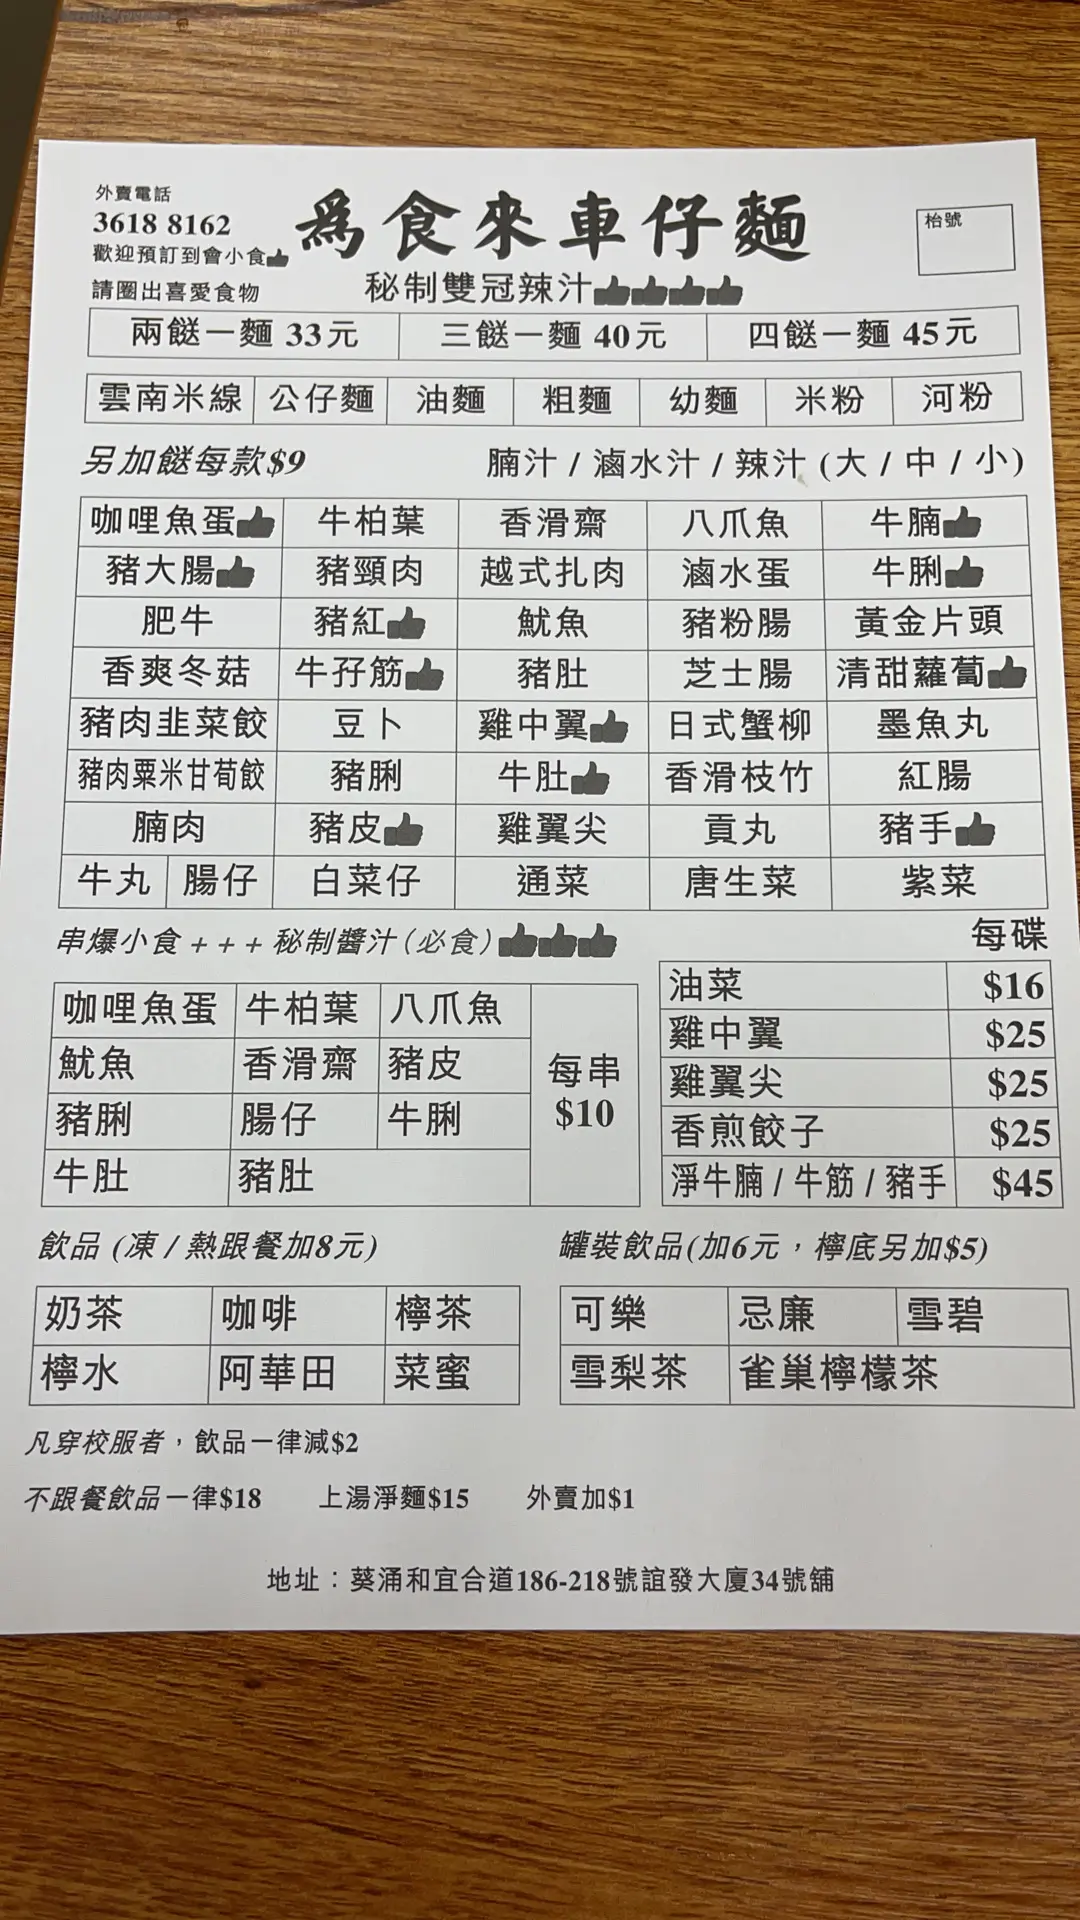 外賣電話
3618 8162
歡迎預訂到會小食👍
請圈出喜愛食物
為食來車仔麵
秘制雙冠辣汁👍👍👍👍
枱號
兩餸一麵 33元 三餸一麵 40元 四餸一麵 45元
雲南米線 公仔麵 油麵 粗麵 幼麵 米粉 河粉
另加餸每款$9 腩汁 / 滷水汁 / 辣汁 (大 / 中 / 小)
咖哩魚蛋👍 牛柏葉 香滑齋 八爪魚 牛腩👍
豬大腸👍 豬頸肉 越式扎肉 滷水蛋 牛脷👍
肥牛 豬紅👍 魷魚 豬粉腸 黃金片頭
香爽冬菇 牛孖筋👍 豬肚 芝士腸 清甜蘿蔔👍
豬肉韭菜餃 豆卜 雞中翼👍 日式蟹柳 墨魚丸
豬肉粟米甘荀餃 豬脷 牛肚👍 香滑枝竹 紅腸
腩肉 豬皮👍 雞翼尖 貢丸 豬手👍
牛丸 腸仔 白菜仔 通菜 唐生菜 紫菜
串爆小食 + + + 秘制醬汁 (必食) 👍👍👍
咖哩魚蛋 牛柏葉 八爪魚
魷魚 香滑齋 豬皮
豬脷 腸仔 牛脷
牛肚 豬肚
每串
$10
每碟
油菜 $16
雞中翼 $25
雞翼尖 $25
香煎餃子 $25
淨牛腩 / 牛筋 / 豬手 $45
飲品 (凍 / 熱跟餐加8元)
奶茶 咖啡 檸茶
檸水 阿華田 菜蜜
罐裝飲品(加6元，檸底另加$5)
可樂 忌廉 雪碧
雪梨茶 雀巢檸檬茶
凡穿校服者，飲品一律減$2
不跟餐飲品一律$18 上湯淨麵$15 外賣加$1
地址：葵涌和宜合道186-218號誼發大廈34號舖